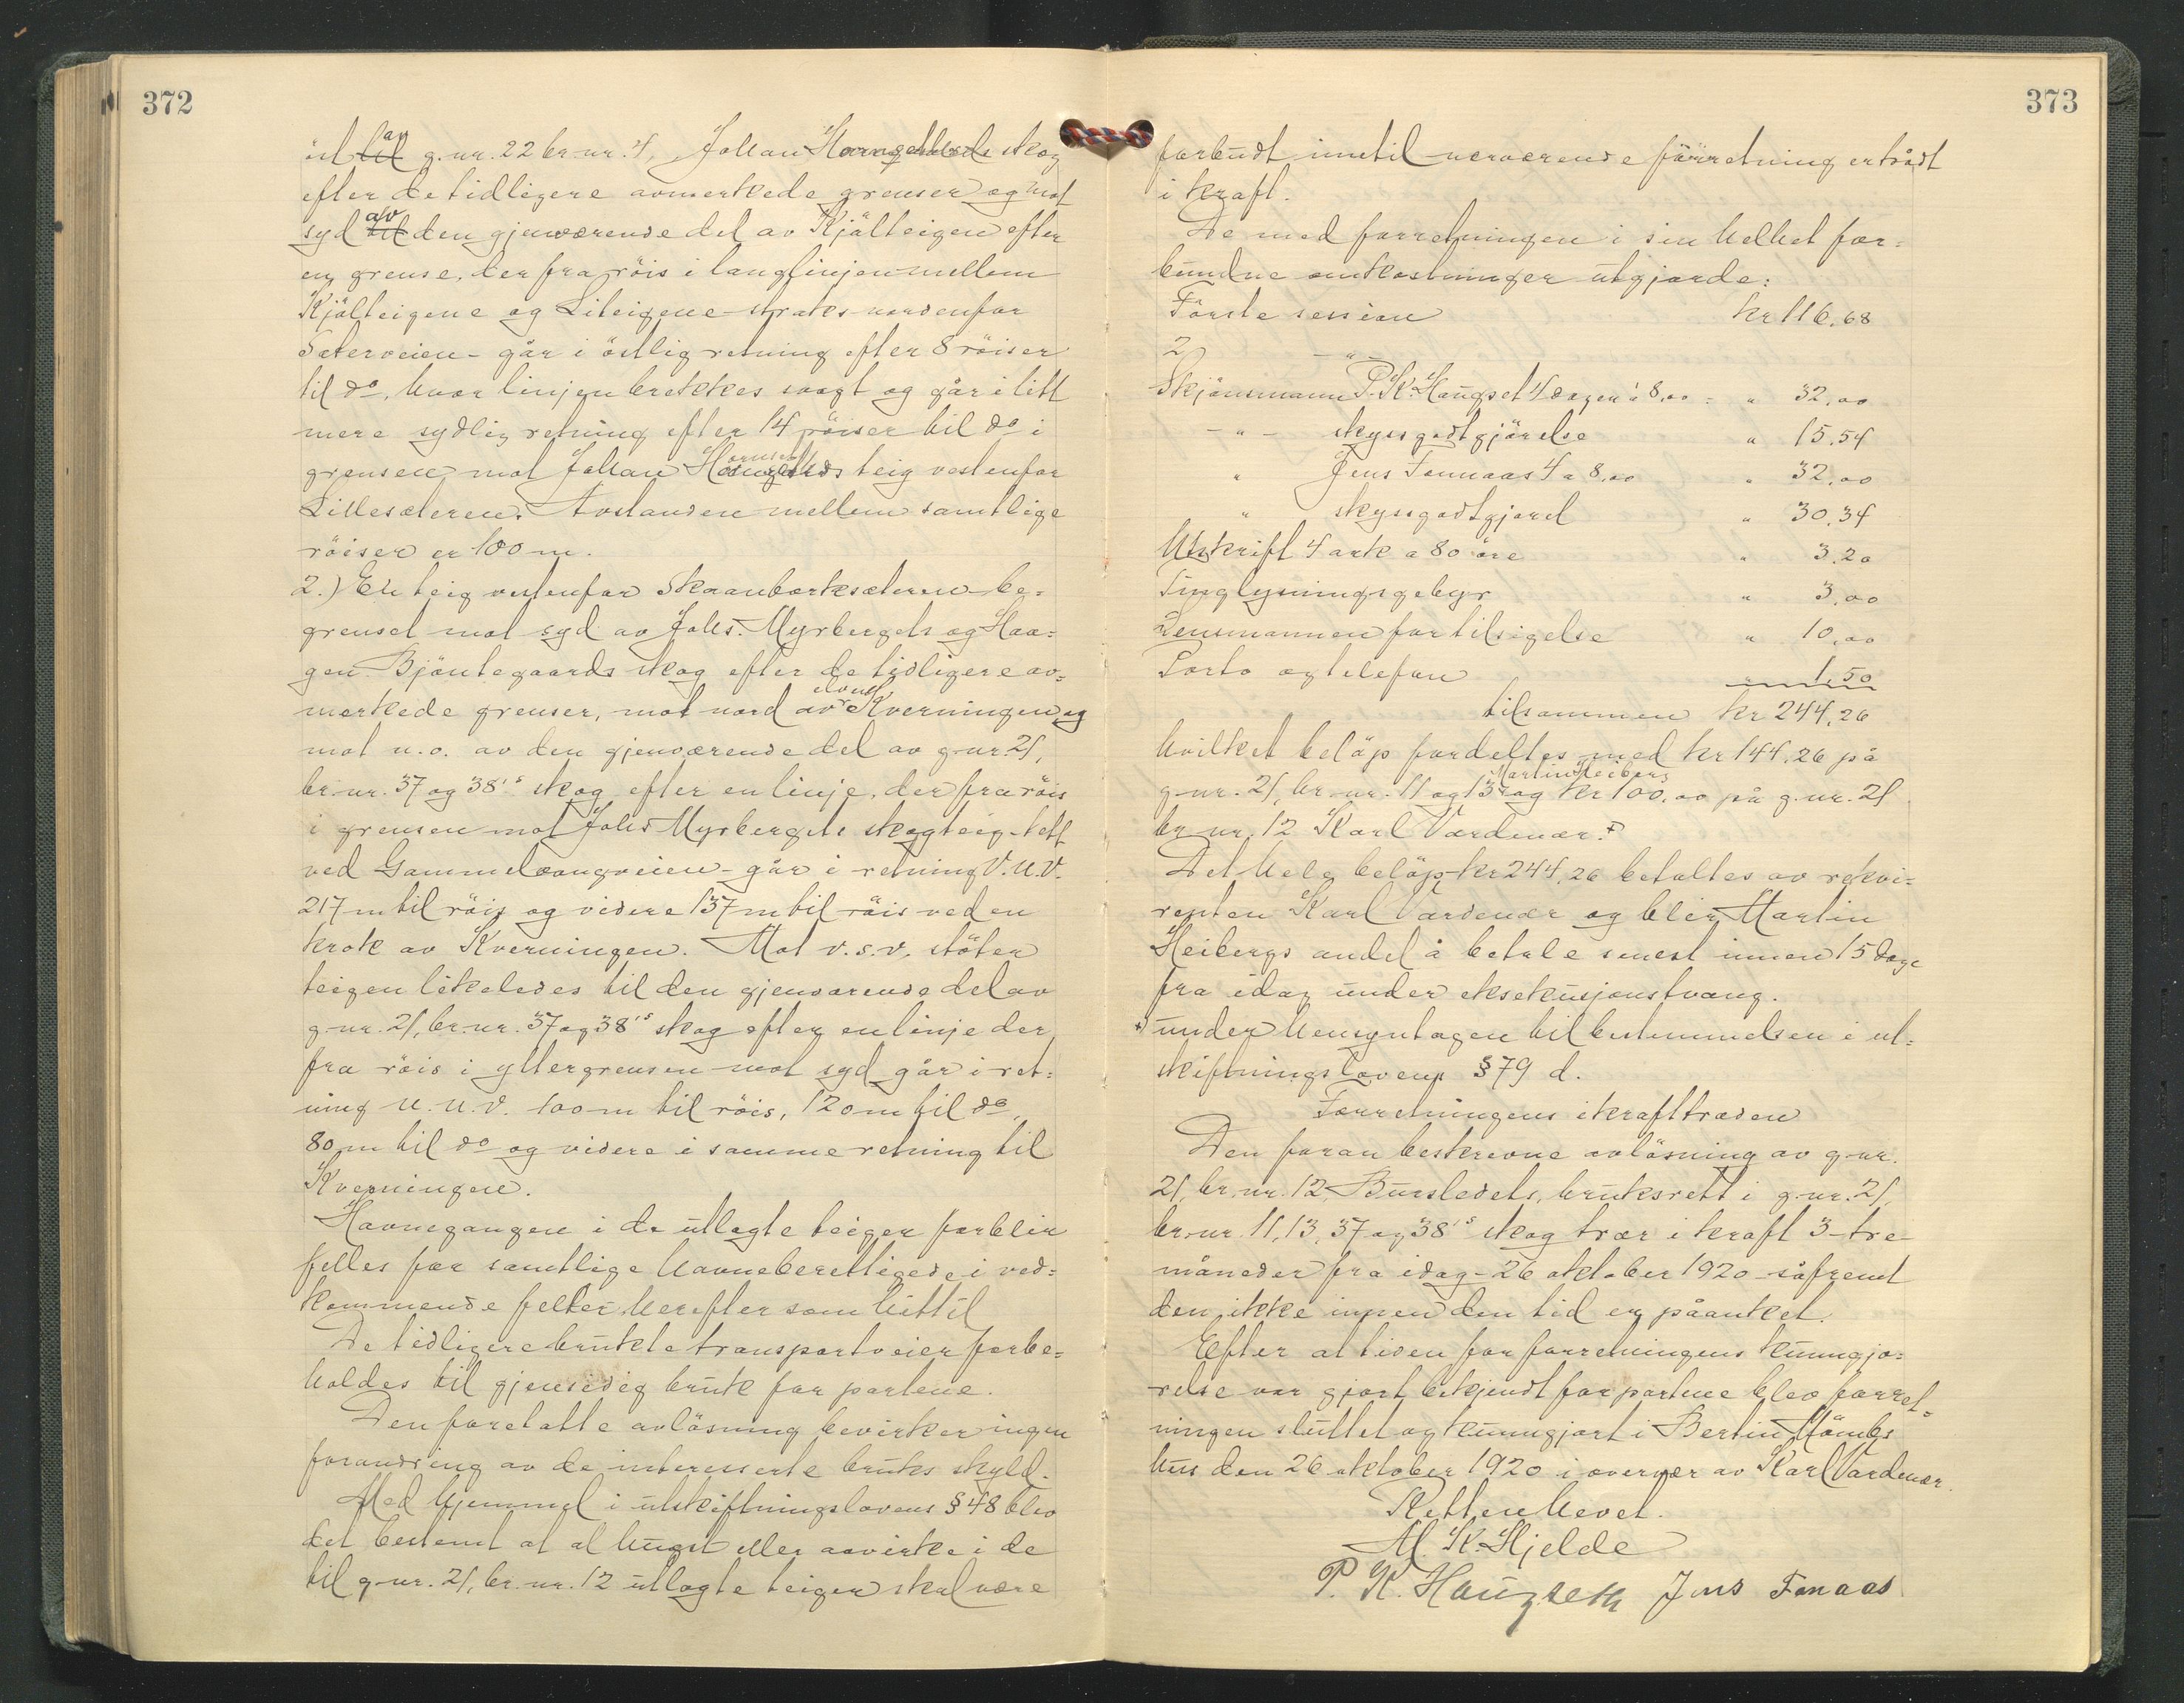 372
öst av g.nr. 22 br.nr. 4, Johan skog
efter de tidligere avmerkede grenser og mot
syd av den gjenværende del av Kjälteigen efter
en grense, der fra röis i langlinjen mellem
Kjölteigene og Liteigene straks nordenfor
Sæterveien - går i östlig retning efter 8 röiser
til do, hvor linjen brekkes svagt og går i litt
mere sydlig retning efter 14 röiser til do i
grensen mot Johan teig vestenfor
Lillesæteren. Avstanden mellem samtlige
röiser er 100 m.
2.) En teig vestenfor Skaanbørksæteren be-
grenset mot syd av Johs. Myrbergets og Haa-
gen Bjöntegaards skog efter de tidligere av-
merkede grenser, mot nord av elven Kverningen og
mot n.o. av den gjenværende del av g.nr. 21,
br.nr. 37 og 38's skog efter en linje, der fra röis
i grensen mot Johs Myrbergets skogteig tett
ved Gammelvangveien - går i retning V.N.V.
217 m til röis og videre 137 m til röis ved en
krok av Kverningen. Mot v.s.v. stöter
teigen likeledes til den gjenværende del av
g.nr. 21, br.nr. 37 og 38's skog efter en linje der
fra röis i yttergrensen mot syd går i ret-
ning N.N.V. 100 m til röis, 120 m til do,
80 m til do og videre i samme retning til
Kverningen.
Havnegangen i de utlagte teiger forblir
felles for samtlige havneberettigede i ved-
kommende felter herefter som hittil
De tidligere brukte transportveier forbe-
holdes til gjensidig bruk for partene.
Den foretatte avlösning bevirker ingen
forandring av de interesserte bruks skyld.
Med hjemmel i utskiftningslovens § 48 blev
det bestemt at al hugst eller avvirke i de
til g.nr. 21, br.nr. 12 utlagte teiger skal være
373
forbudt inntil nerværende forretning er trådt
i kraft.
De med forretningen i sin helhet for-
bundne omkostninger utgjorde:
Förste session kr 116,68
2 - " -
Skjönsmann P. K. Haugset 4 dager à 8,00 = " 32,00
- " - skyssgodtgjörelse " 15,54
" Jens Fonnaas 4 a 8,00 " 32,00
" skyssgodtgjörel " 30,34
Utskrift 4 ark a 80 öre " 3,20
Tinglysningsgebyr " 3,00
Lensmannen for tilsigelse " 10,00
Porto og telefon " 1,50
tilsammen kr 244,26
hvilket belöp fordeltes med kr 144,26 på
g.nr. 21, br.nr. 11 og 13 Martin Heiberg og kr 100,00 på g.nr. 21
br.nr. 12 Karl Vardenær. +)
Det hele belöp kr 244,26 betaltes av rekvi-
renten Karl Vardenær og blir Martin
Heibergs andel å betale senest innen 15 dage
fra idag under eksekusjonstvang.
+) under hensyntagen til bestemmelsen i ut-
skiftningslovens § 79 d.
Forretningens ikrafttræden
Den foran beskrevne avlösning av g.nr.
21, br.nr. 12, Bursledets, bruksrett i g.nr. 21,
br.nr. 11, 13, 37 og 38's skog trær i kraft 3 - tre -
måneder fra idag - 26 oktober 1920 - såfremt
den ikke innen den tid er påanket.
Efter at tiden for forretningens kunngjö-
relse var gjort bekjendt for partene blev forret-
ningen sluttet og kunngjort i Bertin
hus den 26 oktober 1920 i overvær av Karl Vardenær.
Retten hevet.
M. K. Hjelde
P. K. Haugseth Jens Fonaas